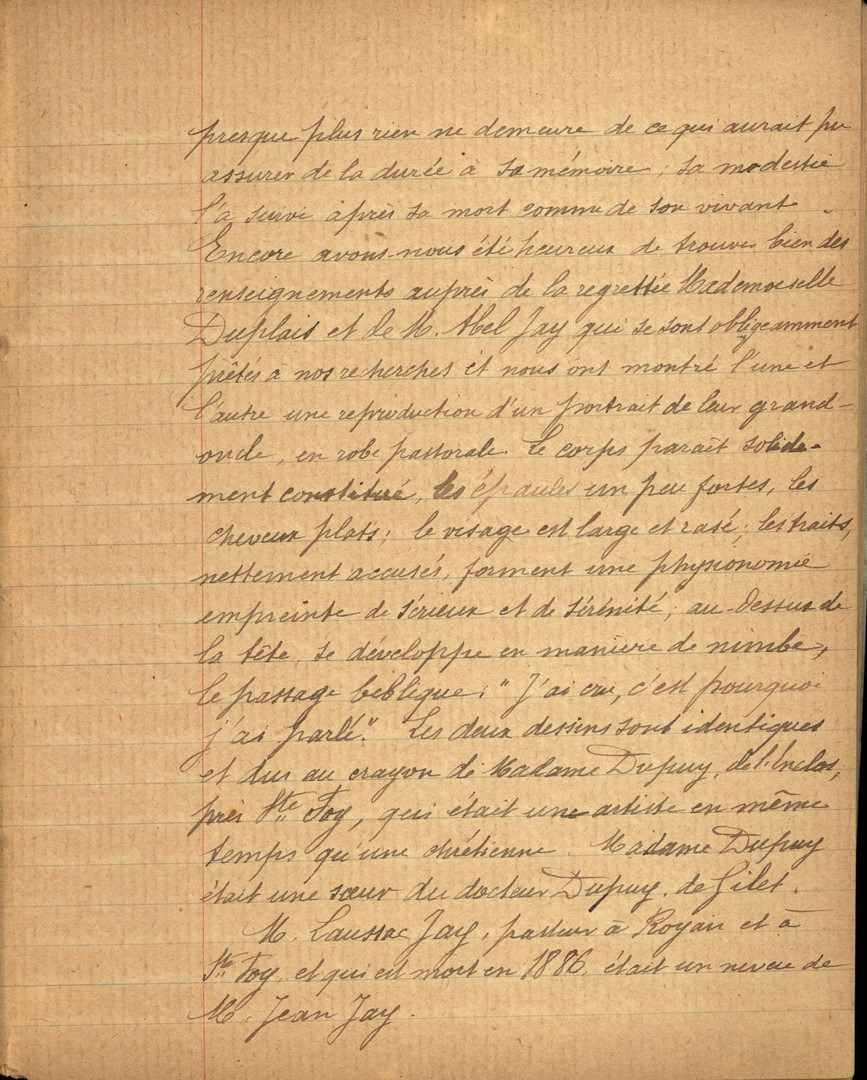 presque plus rien ne demeure de ce qui aurait pu
assurer de la durée à sa mémoire ; sa modestie
l'a suivi après sa mort comme de son vivant.
Encore avons-nous été heureux de trouver bien des
renseignements auprès de la regrettée Mademoiselle
Duplais et de M. Abel Jay qui se sont obligeamment
prêtés à nos recherches et nous ont montré l'une et
l'autre une reproduction d'un portrait de leur grand-
oncle, en robe pastorale. Le corps parait solide-
ment constitué, les épaules un peu fortes, les
cheveux plats ; le visage est large et rasé ; les traits,
nettement accusés, forment une physionomie
empreinte de sérieux et de sérénité ; au-dessus de
la tête, se développe en manière de nimbe,
le passage biblique : "J'ai cru, c'est pourquoi
j'ai parlé". Les deux dessins sont identiques
et dus au crayon de Madame Dupuy, de l'Enclos,
près Ste Foy, qui était une artiste en même
temps qu'une chrétienne. Madame Dupuy
était une sœur du docteur Dupuy, de Gilet.
M. Laussac Jay, pasteur à Royan et à
Ste Foy, et qui est mort en 1886, était un neveu de
M. Jean Jay.